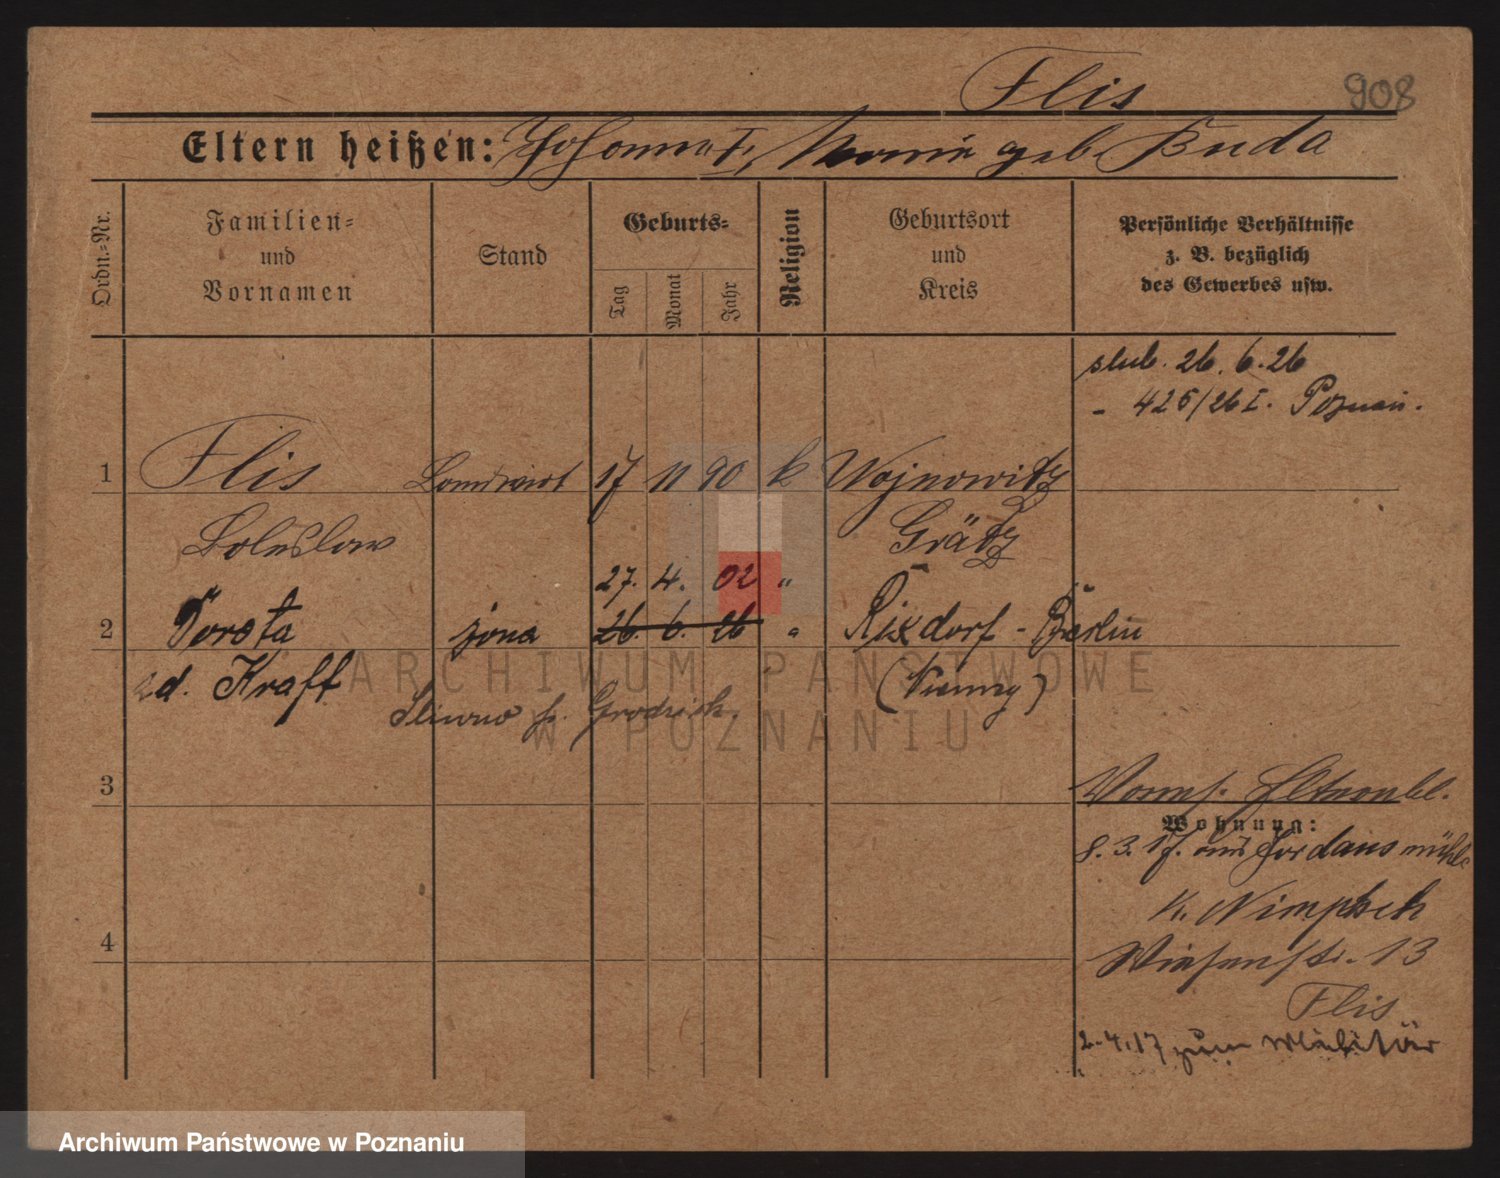 Flis 908
Eltern heißen: Johann I, Marie geb. Buda
Ordn.-Nr.
Familien-
und
Vornamen
Stand
Geburts-
Tag
Monat
Jahr
Religion
Geburtsort
und
Kreis
Persönliche Verhältnisse
z. B. bezüglich
des Gewerbes usw.
slub. 26. 6. 26
- 425/26 I. Poznań.
1 Flis Landwirt 17 11 90 k Wojnowitz
Boleslaw Grätz
27. 4. 02 "
2 Dorota żona 26. 6. 26 " Rixdorf - Berlin
zd. Kraff (Niemcy)
Śliwno p. Grodzisk
3
Wohnung:
8. 3. 17. aus Jordansmühl
Kr. Nimptsch
4
Wiesenstr. 13
Flis
2.4.17 zum Militär
ARCHIWUM PAŃSTWOWE
W POZNANIU
Archiwum Państwowe w Poznaniu